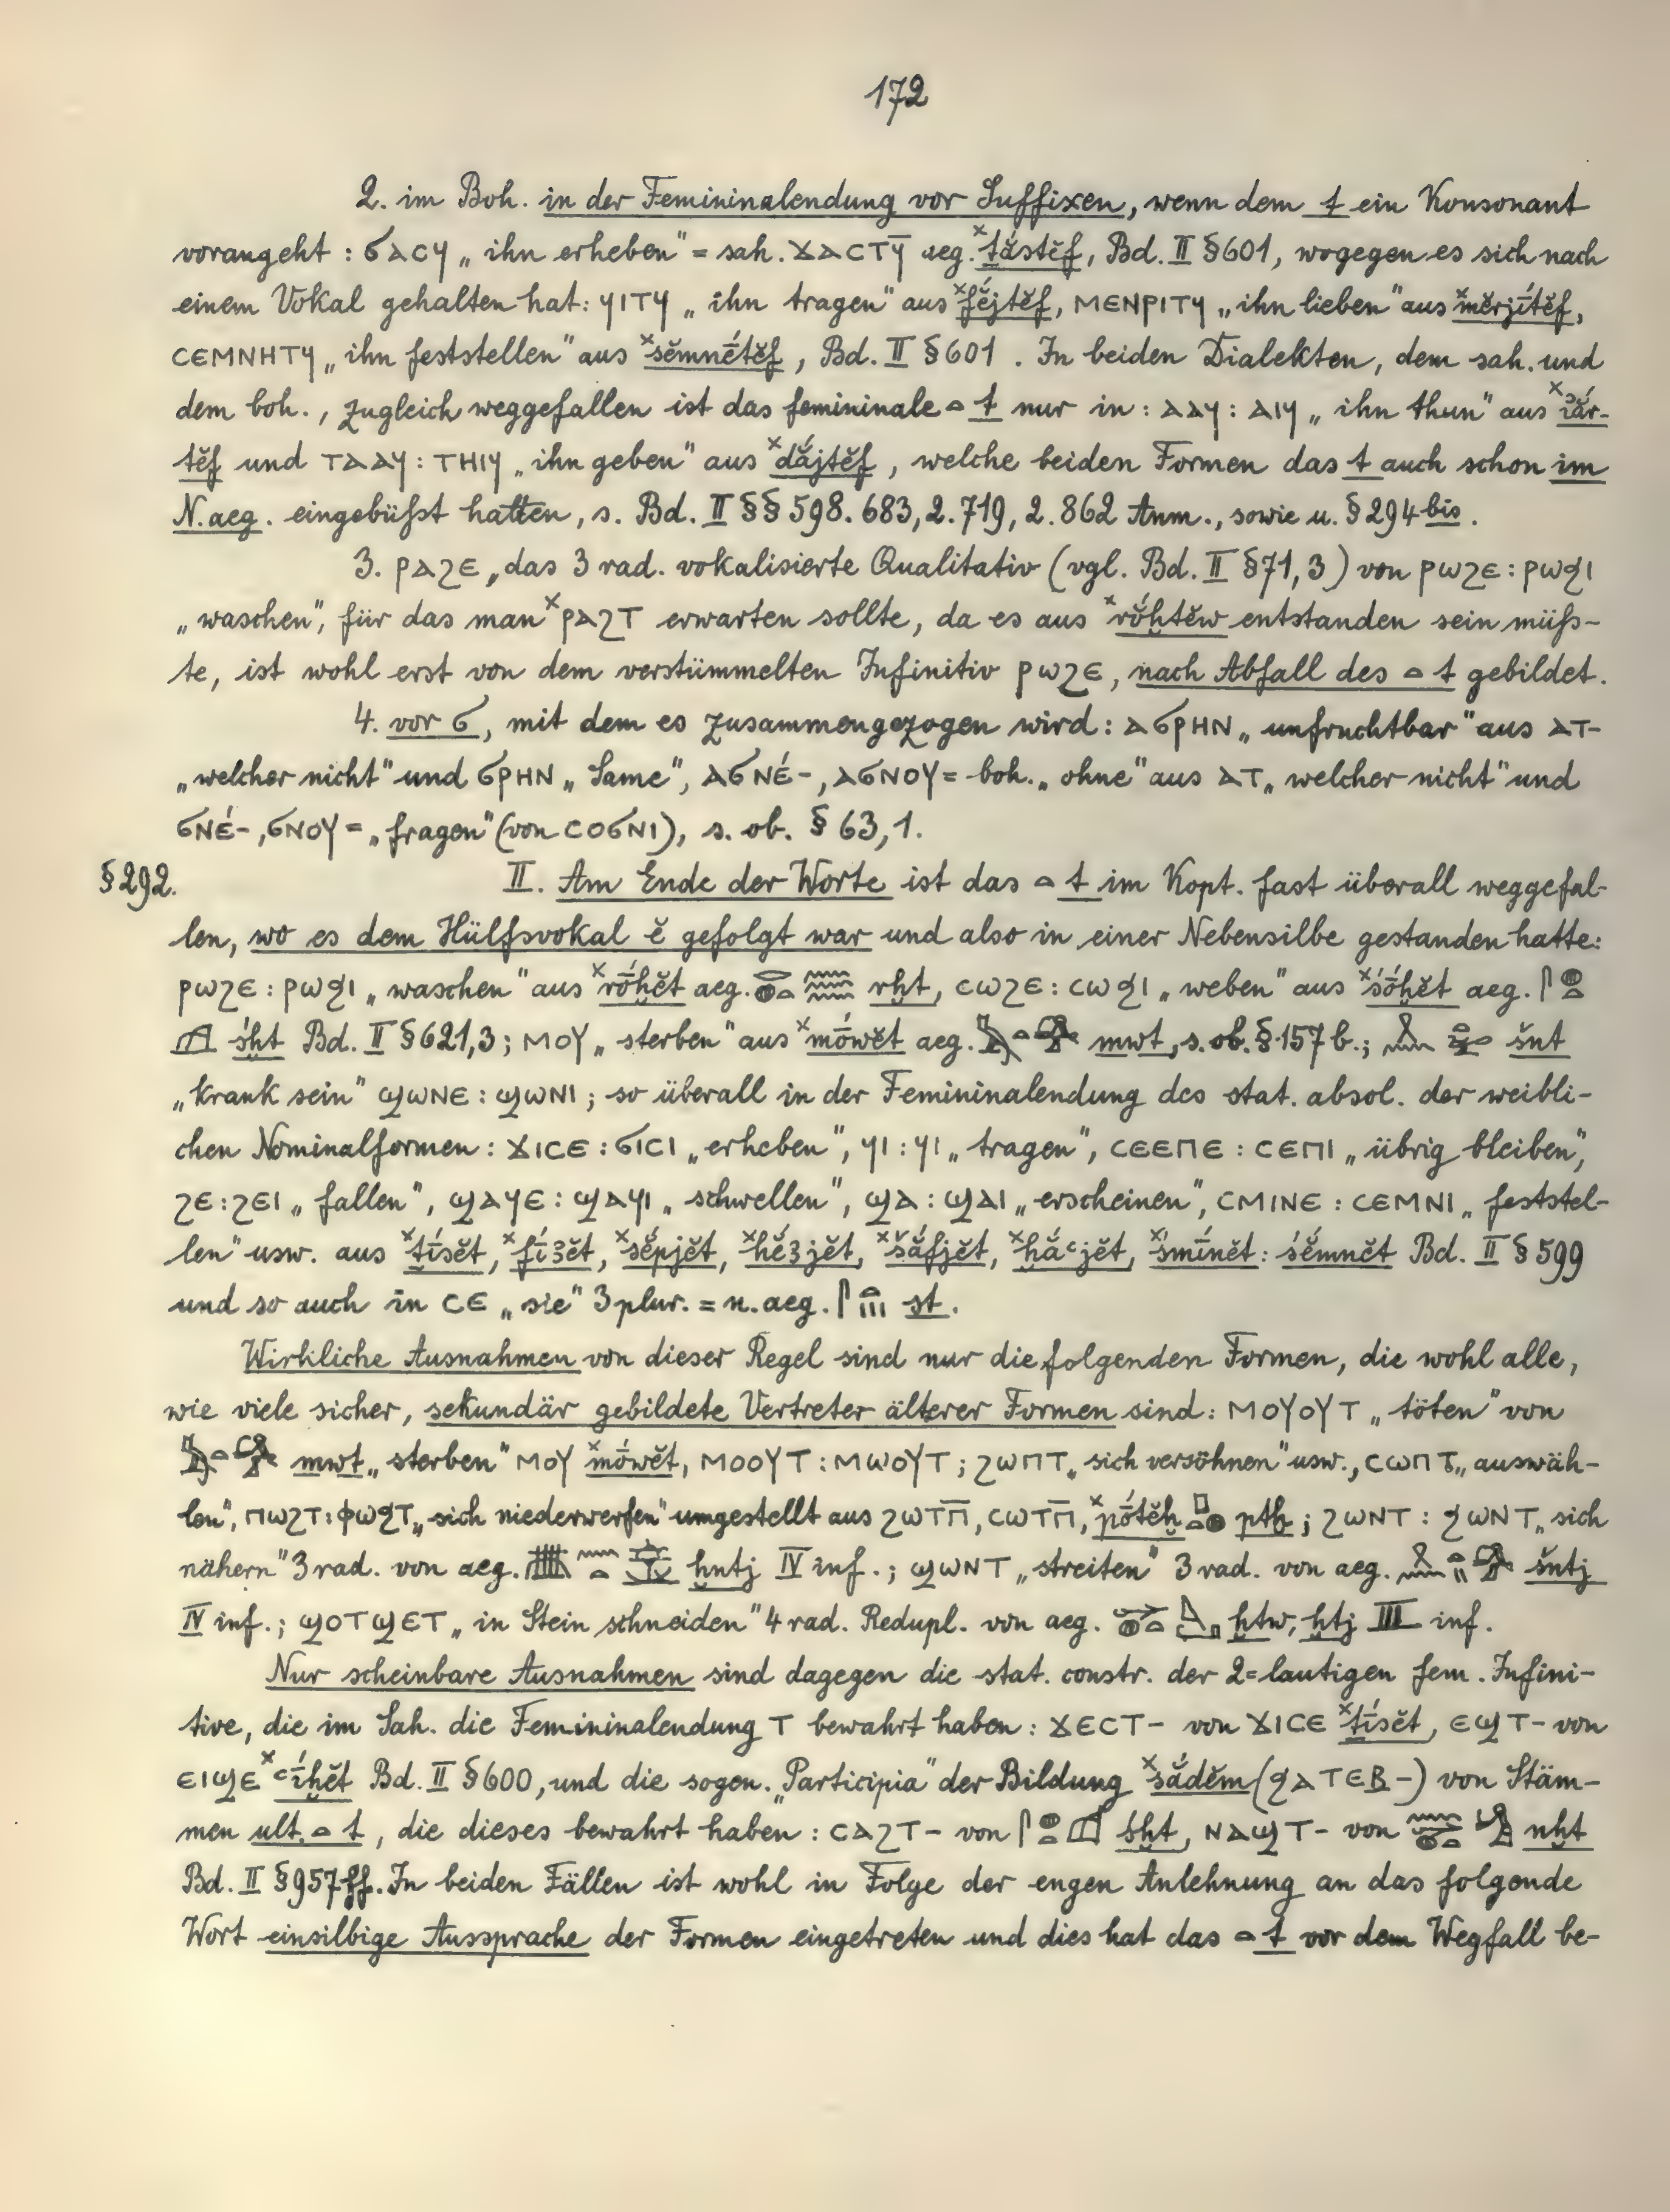 172
2. im Boh. in der Femininalendung vor Suffixen, wenn dem t ein Konsonant
vorangeht : ϭⲁⲥϥ „ ihn erheben" = sah. ϫⲁⲥⲧϥ̄ aeg. ˣṯắstĕf, Bd. II § 601, wogegen es sich nach
einem Vokal gehalten hat: ϥⲓⲧϥ „ ihn tragen" aus ˣfḗjtĕf, ⲙⲉⲛⲣⲓⲧϥ „ ihn lieben" aus ˣmĕrjī́tĕf,
ⲥⲉⲙⲛⲏⲧϥ „ ihn feststellen" aus ˣsĕmnḗtĕf, Bd. II § 601 . In beiden Dialekten, dem sah. und
dem boh., zugleich weggefallen ist das femininale 𓏏 t nur in : ⲁⲁϥ : ⲁⲓϥ „ ihn thun" aus ˣı͗ắr-
tĕf und ⲧⲁⲁϥ : ⲧⲏⲓϥ „ ihn geben" aus ˣdắjtĕf , welche beiden Formen das t auch schon im
N. aeg. eingebüßt hatten, s. Bd. II §§ 598. 683, 2. 719, 2. 862 Anm., sowie u. § 294 bis.
3. ⲣⲁϩⲉ „das 3 rad. vokalisierte Qualitativ (vgl. Bd. II § 71, 3) von ⲣⲱϩⲉ : ⲣⲱϧⲓ
„ waschen", für das man ˣⲣⲁϩⲧ erwarten sollte, da es aus ˣrŏ́ḫtĕw entstanden sein müß-
te, ist wohl erst von dem verstümmelten Infinitiv ⲣⲱϩⲉ, nach Abfall des 𓏏 t gebildet.
4. vor ϭ, mit dem es zusammengezogen wird : ⲁϭⲣⲏⲛ „ unfruchtbar" aus ⲁⲧ-
„ welcher nicht" und ϭⲣⲏⲛ „ Same", ⲁϭⲛⲉ́-, ⲁϭⲛⲟⲩ= boh. „ ohne" aus ⲁⲧ „ welcher nicht" und
ϭⲛⲉ́-, ϭⲛⲟⲩ= „ fragen" (von ⲥⲟϭⲛⲓ), s. ob. § 63, 1.
§ 292. II. Am Ende der Worte ist das 𓏏 t im Kopt. fast überall weggefal-
len, wo es dem Hülfsvokal ĕ gefolgt war und also in einer Nebensilbe gestanden hatte:
ⲣⲱϩⲉ : ⲣⲱϧⲓ „ waschen" aus ˣrṓḫĕt aeg. rḫt, ⲥⲱϩⲉ : ⲥⲱϧⲓ „ weben" aus ˣśṓḫĕt aeg.
śḫt Bd. II § 621, 3 ; ⲙⲟⲩ „ sterben" aus ˣmṓwĕt aeg. mwt, s. ob. § 157 b. ; šnt
„ krank sein" ϣⲱⲛⲉ : ϣⲱⲛⲓ ; so überall in der Femininalendung des stat. absol. der weibli-
chen Nominalformen : ϫⲓⲥⲉ : ϭⲓⲥⲓ „ erheben", ϥⲓ : ϥⲓ „ tragen", ⲥⲉⲉⲡⲉ : ⲥⲉⲡⲓ „ übrig bleiben",
ϩⲉ : ϩⲉⲓ „ fallen", ϣⲁϥⲉ : ϣⲁϥⲓ „ schwellen", ϣⲁ : ϣⲁⲓ „ erscheinen", ⲥⲙⲓⲛⲉ : ⲥⲉⲙⲛⲓ „ feststel-
len" usw. aus ˣṯī́sĕt, ˣfī́ꜣĕt, ˣsĕ́pjĕt, ˣhĕ́ꜣjĕt, ˣšắfjĕt, ˣḫắꜥjĕt, ˣśmī́nĕt : śĕ́mnĕt Bd. II § 599
und so auch in ⲥⲉ „ sie" 3 plur. = n. aeg. st.
Wirkliche Ausnahmen von dieser Regel sind nur die folgenden Formen, die wohl alle,
wie viele sicher, sekundär gebildete Vertreter älterer Formen sind : ⲙⲟⲩⲟⲩⲧ „ töten" von
mwt „ sterben" ⲙⲟⲩ ˣmṓwĕt, ⲙⲟⲟⲩⲧ : ⲙⲱⲟⲩⲧ ; ϩⲱⲡⲧ „ sich versöhnen" usw., ⲥⲱⲡⲧ „ auswäh-
len", ⲡⲱϩⲧ : ⲫⲱϧⲧ „ sich niederwerfen" umgestellt aus ϩⲱⲧⲡ̄, ⲥⲱⲧⲡ̄, ˣpṓtĕḫ ptḫ ; ϩⲱⲛⲧ : ϧⲱⲛⲧ „ sich
nähern" 3 rad. von aeg. ḫntj IV inf. ; ϣⲱⲛⲧ „ streiten" 3 rad. von aeg. šntj
IV inf. ; ϣⲟⲧϣⲉⲧ „ in Stein schneiden" 4 rad. Redupl. von aeg. ḫtw, ḫtj III inf.
Nur scheinbare Ausnahmen sind dagegen die stat. constr. der 2=lautigen fem. Infini-
tive, die im Sah. die Femininalendung ⲧ bewahrt haben : ϫⲉⲥⲧ- von ϫⲓⲥⲉ ˣṯī́sĕt, ⲉϣⲧ- von
ⲉⲓϣⲉ ˣꜥī́ḫĕt Bd. II § 600, und die sogen. „Participia" der Bildung ˣsắdĕm (ϧⲁⲧⲉⲃ-) von Stäm-
men ult. 𓏏 t, die dieses bewahrt haben : ⲥⲁϩⲧ- von śḫt, ⲛⲁϣⲧ- von nḫt
Bd. II § 957 ff. In beiden Fällen ist wohl in Folge der engen Anlehnung an das folgende
Wort einsilbige Aussprache der Formen eingetreten und dies hat das 𓏏 t vor dem Wegfall be-